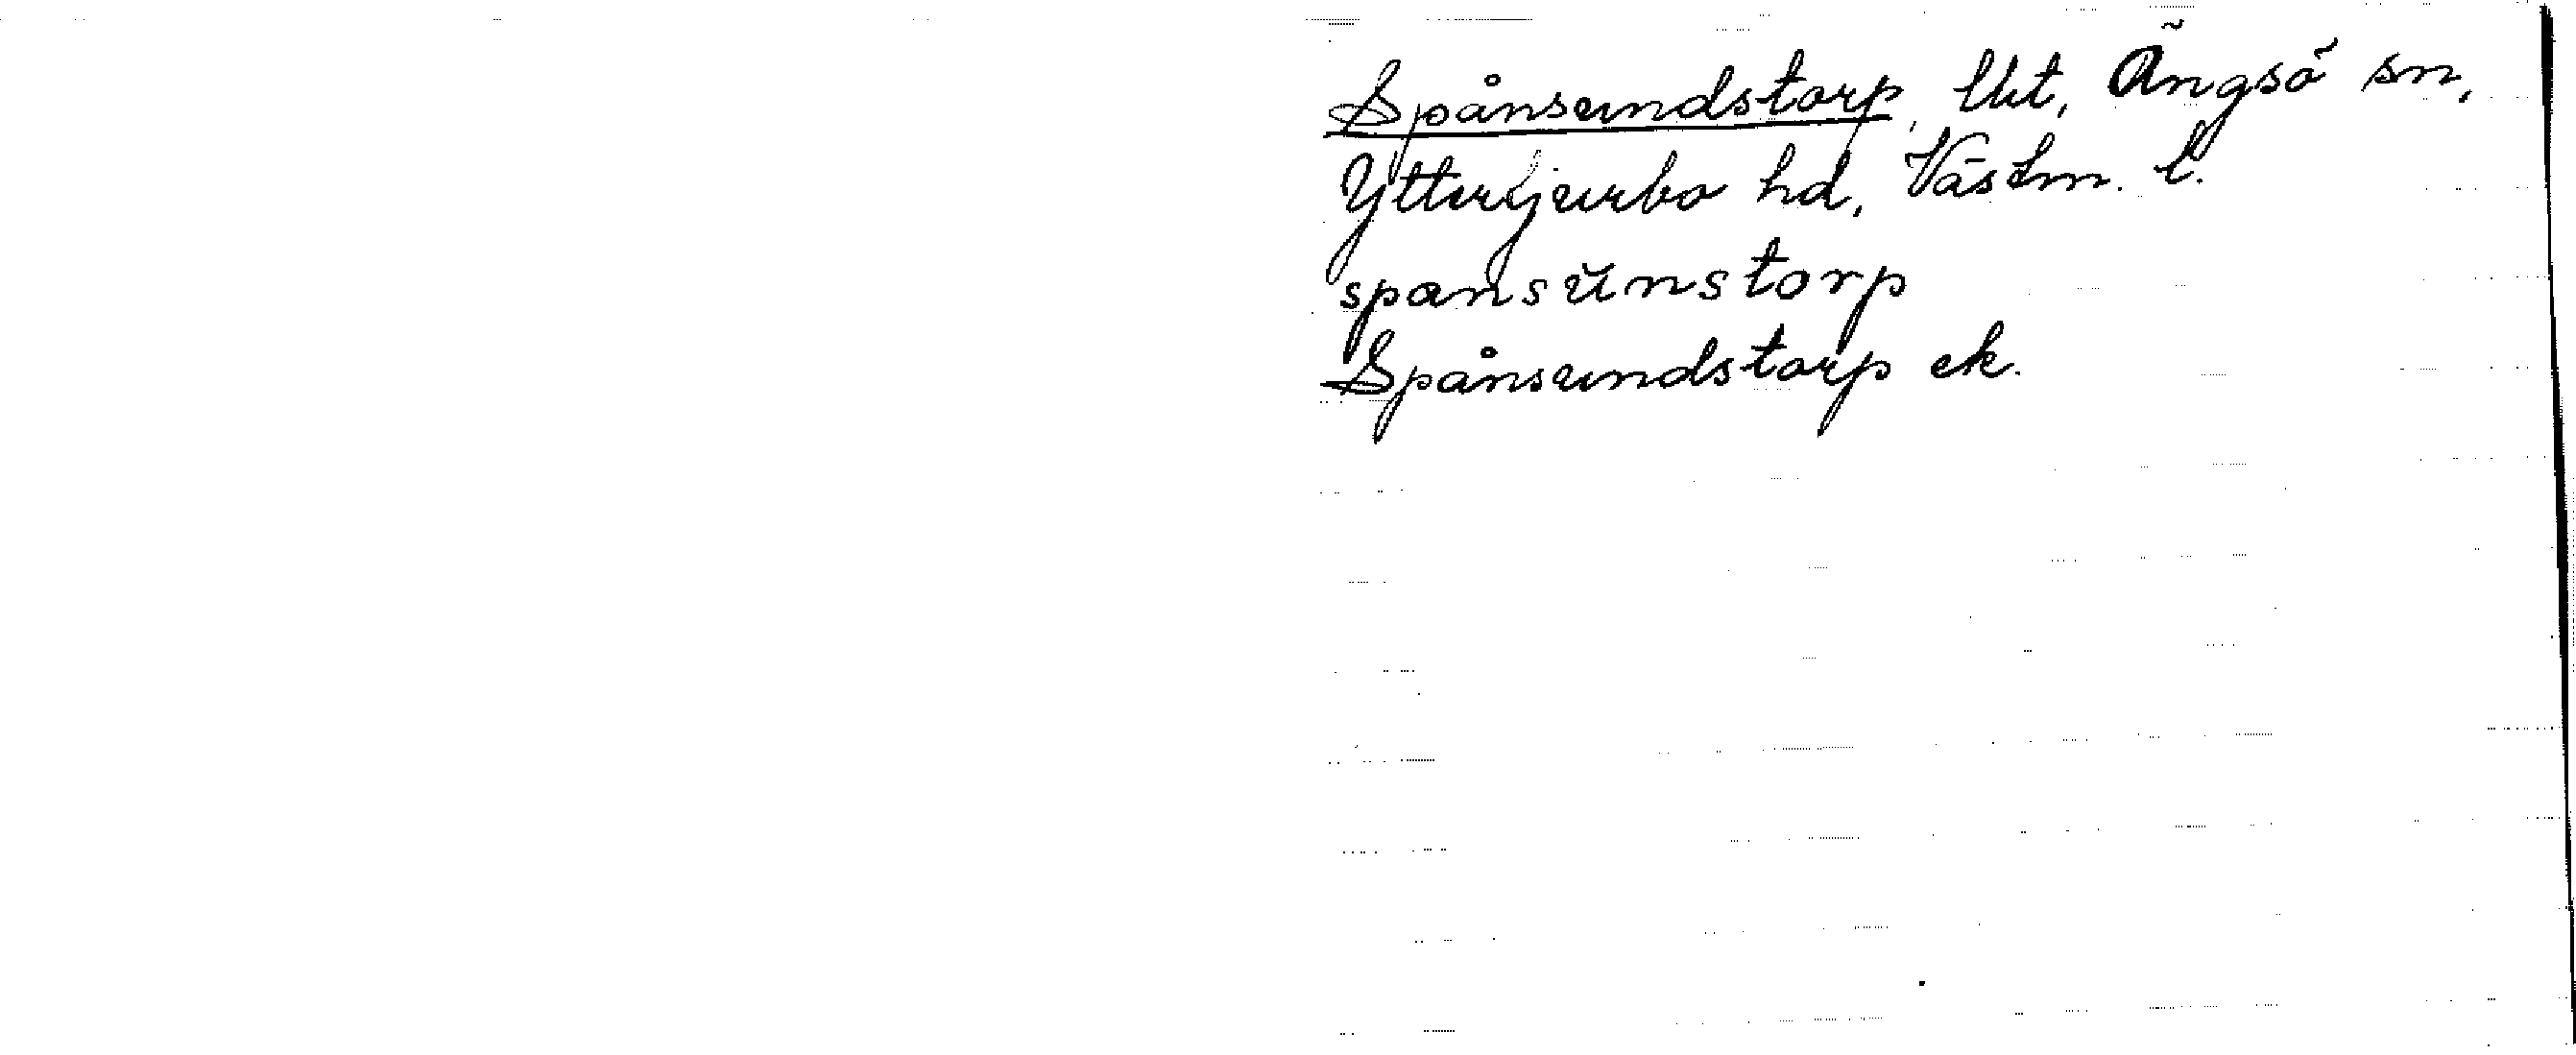 Spånsundstorp, lht, Ängsö sn,
Yttertjurbo hd, Västm. l.
spansŭnstorp
Spånsundstorp ek.